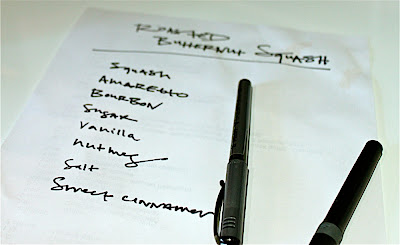 ROASTED
BUTTERNUT SQUASH
SQUASH
AMARETTO
BOURBON
Sugar
Vanilla
nutmeg
Salt
Sweet CINNAMON